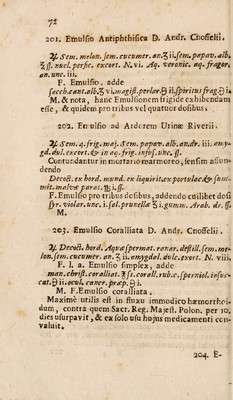 72
201. Emulsio Antiphthisica D. Andr. Cnoffelii.
℞ Sem. melon. sem. cucumer. an. ʒ ii. sem. papav. alb.
ʒ ß. nucl. persic. excort. N. vi. Aq. veronic. aq. fragor.
an. unc. iii.
F. Emulsio, adde
sacch. cant. alb. ʒ vi. magist. perlar. ℈ ii. spiritus frag. ℈ i.
M. & nota, hanc Emulsionem frigide exhibendam
esse, & quidem pro tribus vel quatuor dosibus.
202. Emulsio ad Ardorem Urinæ Riverii.
℞ Sem. 4. frig. maj. Sem. papav. alb. an. dr. iii. amy-
gd. dul. excort. & in aq. frig. infus. unc. ß.
Contundantur in mortario marmoreo, sensim affun-
dendo
Decoct. ex hord. mund. ex liquirit. ex portulac. & sum-
mit. malvæ parat. ℔ i. ß.
F. Emulsio pro tribus dosibus, addendo cuilibet dosi
syr. violar. unc. i. sal. prunellæ ℈ i. gumm. Arab. dr. ß.
M.
203. Emulsio Coralliata D. Andr. Cnoffelii.
℞ Decoct. hord. Aquæ spermat. ranar. destill. sem. me-
lon. sem. cucumer. an. ʒ ii. amygdal. dulc. excort. N. viii.
F. l. a. Emulsio simplex, adde
man. christ. coralliat. ℥ ß. corall. rub. c. sperniol. insuc-
cat. ℈ ii. ocul. cancr. præp. ℈ i.
M. F. Emulsio coralliata.
Maximè utilis est in fluxu immodico hæmorrhoi-
dum, contra quem Sacr. Reg. Majest. Polon. per 10.
dies usurpavit, & ex solo usu hujus medicamenti con-
valuit.
204. E-